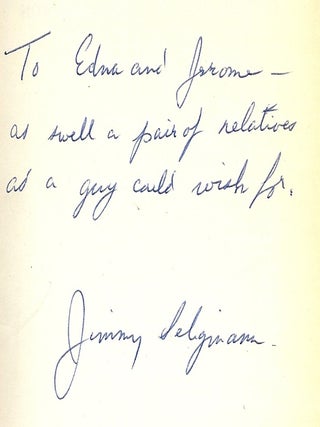 To Edna and Jerome —
as swell a pair of relatives
as a guy could wish for.
Jimmy Seligmann.